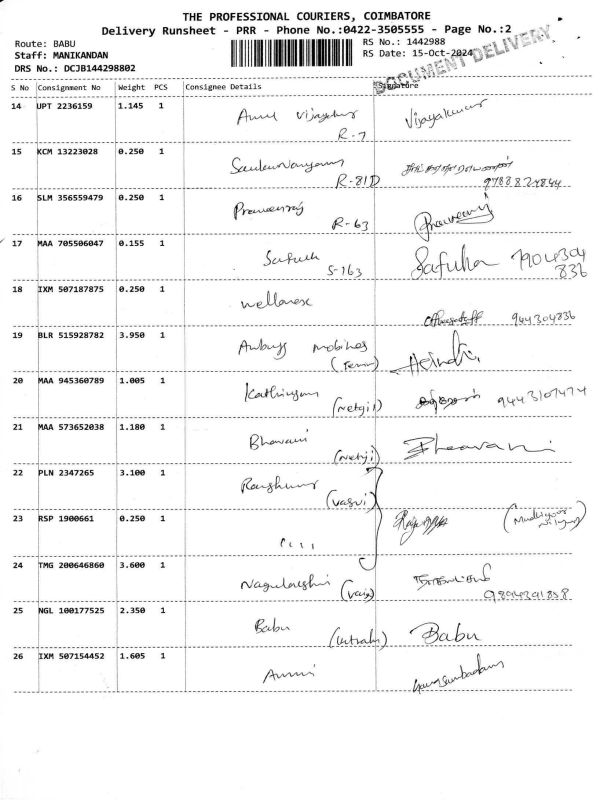 THE PROFESSIONAL COURIERS, COIMBATORE
Delivery Runsheet - PRR - Phone No.:0422-3505555 - Page No.:2
Route: BABU
RS No.: 1442988
Staff: MANIKANDAN
RS Date: 15-Oct-2024
DRS No.: DCJB144298802
DOCUMENT DELIVERY
S No Consignment No Weight PCS Consignee Details Signature
14 UPT 2236159 1.145 1 Vijayakumar
R-7
15 KCM 13223028 0.250 1
R-81D 9788827844
16 SLM 356559479 0.250 1 Praveenraj
R-63 Praveenraj
17 MAA 705506047 0.155 1 Safulla 7904304
S-163 836
18 IXM 507187875 0.250 1
944304836
19 BLR 515928782 3.950 1 mobiles
20 MAA 945360789 1.005 1
(Netaji) 9443107474
21 MAA 573652038 1.180 1 Bhavani Bhavani
(Netaji)
22 PLN 2347265 3.100 1
(vasvi)
23 RSP 1900661 0.250 1
24 TMG 200646860 3.600 1
9894391858
25 NGL 100177525 2.350 1 Babu Babu
26 IXM 507154452 1.605 1